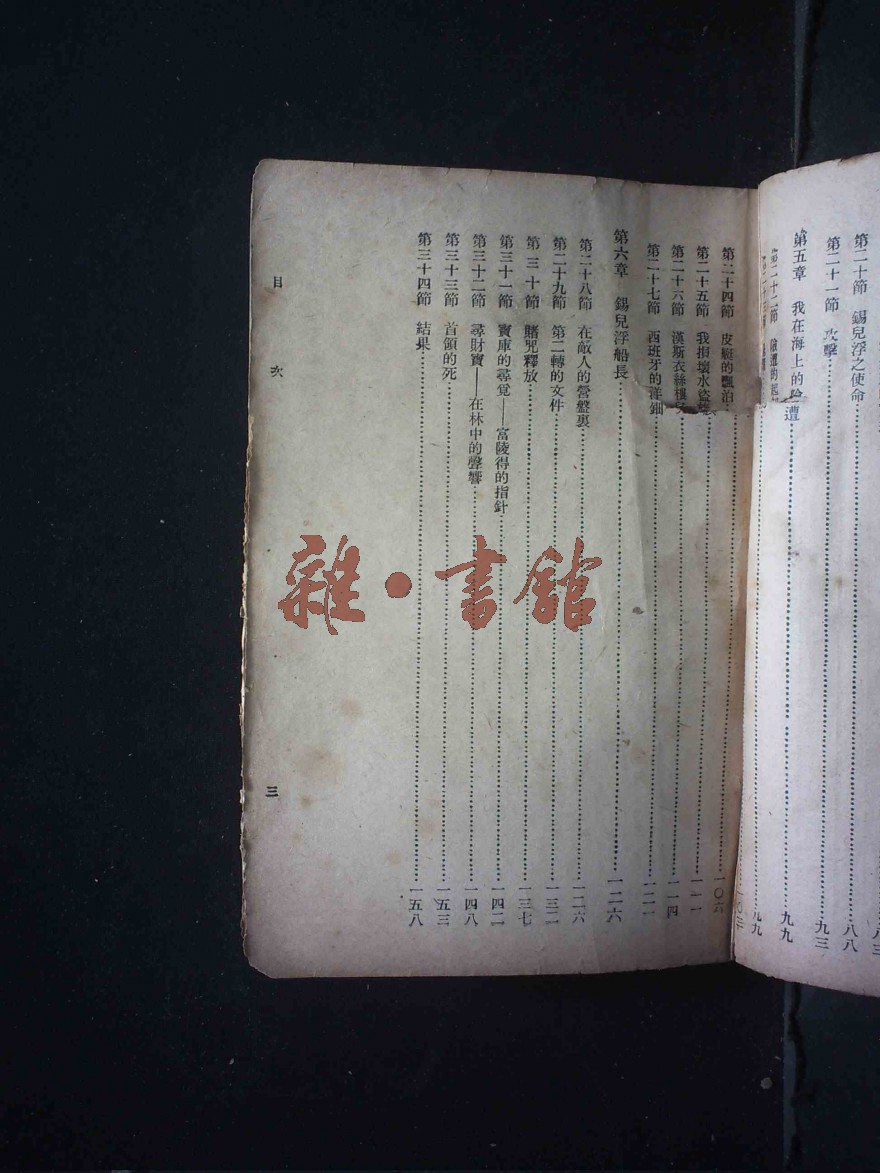 第二十節 錫兒浮之使命……八八
第二十一節 攻擊……九三
第五章 我在海上的險遭……九九
第二十二節 險遭的起……九九
一〇三
第二十四節 皮艇的飄泊……一〇六
第二十五節 我損壞水盜……一一一
第二十六節 漢斯衣絲……一一四
第二十七節 西班牙的洋鈿……一二一
第六章 錫兒浮船長……一二六
第二十八節 在敵人的營盤裏……一二六
第二十九節 第二轉的文件……一三二
第三十節 賭咒釋放……一三七
第三十一節 寶庫的尋覓——富陵得的指針……一四二
第三十二節 尋財寶——在林中的聲響……一四八
第三十三節 首領的死……一五三
第三十四節 結果……一五八
目次
三
雜·書館